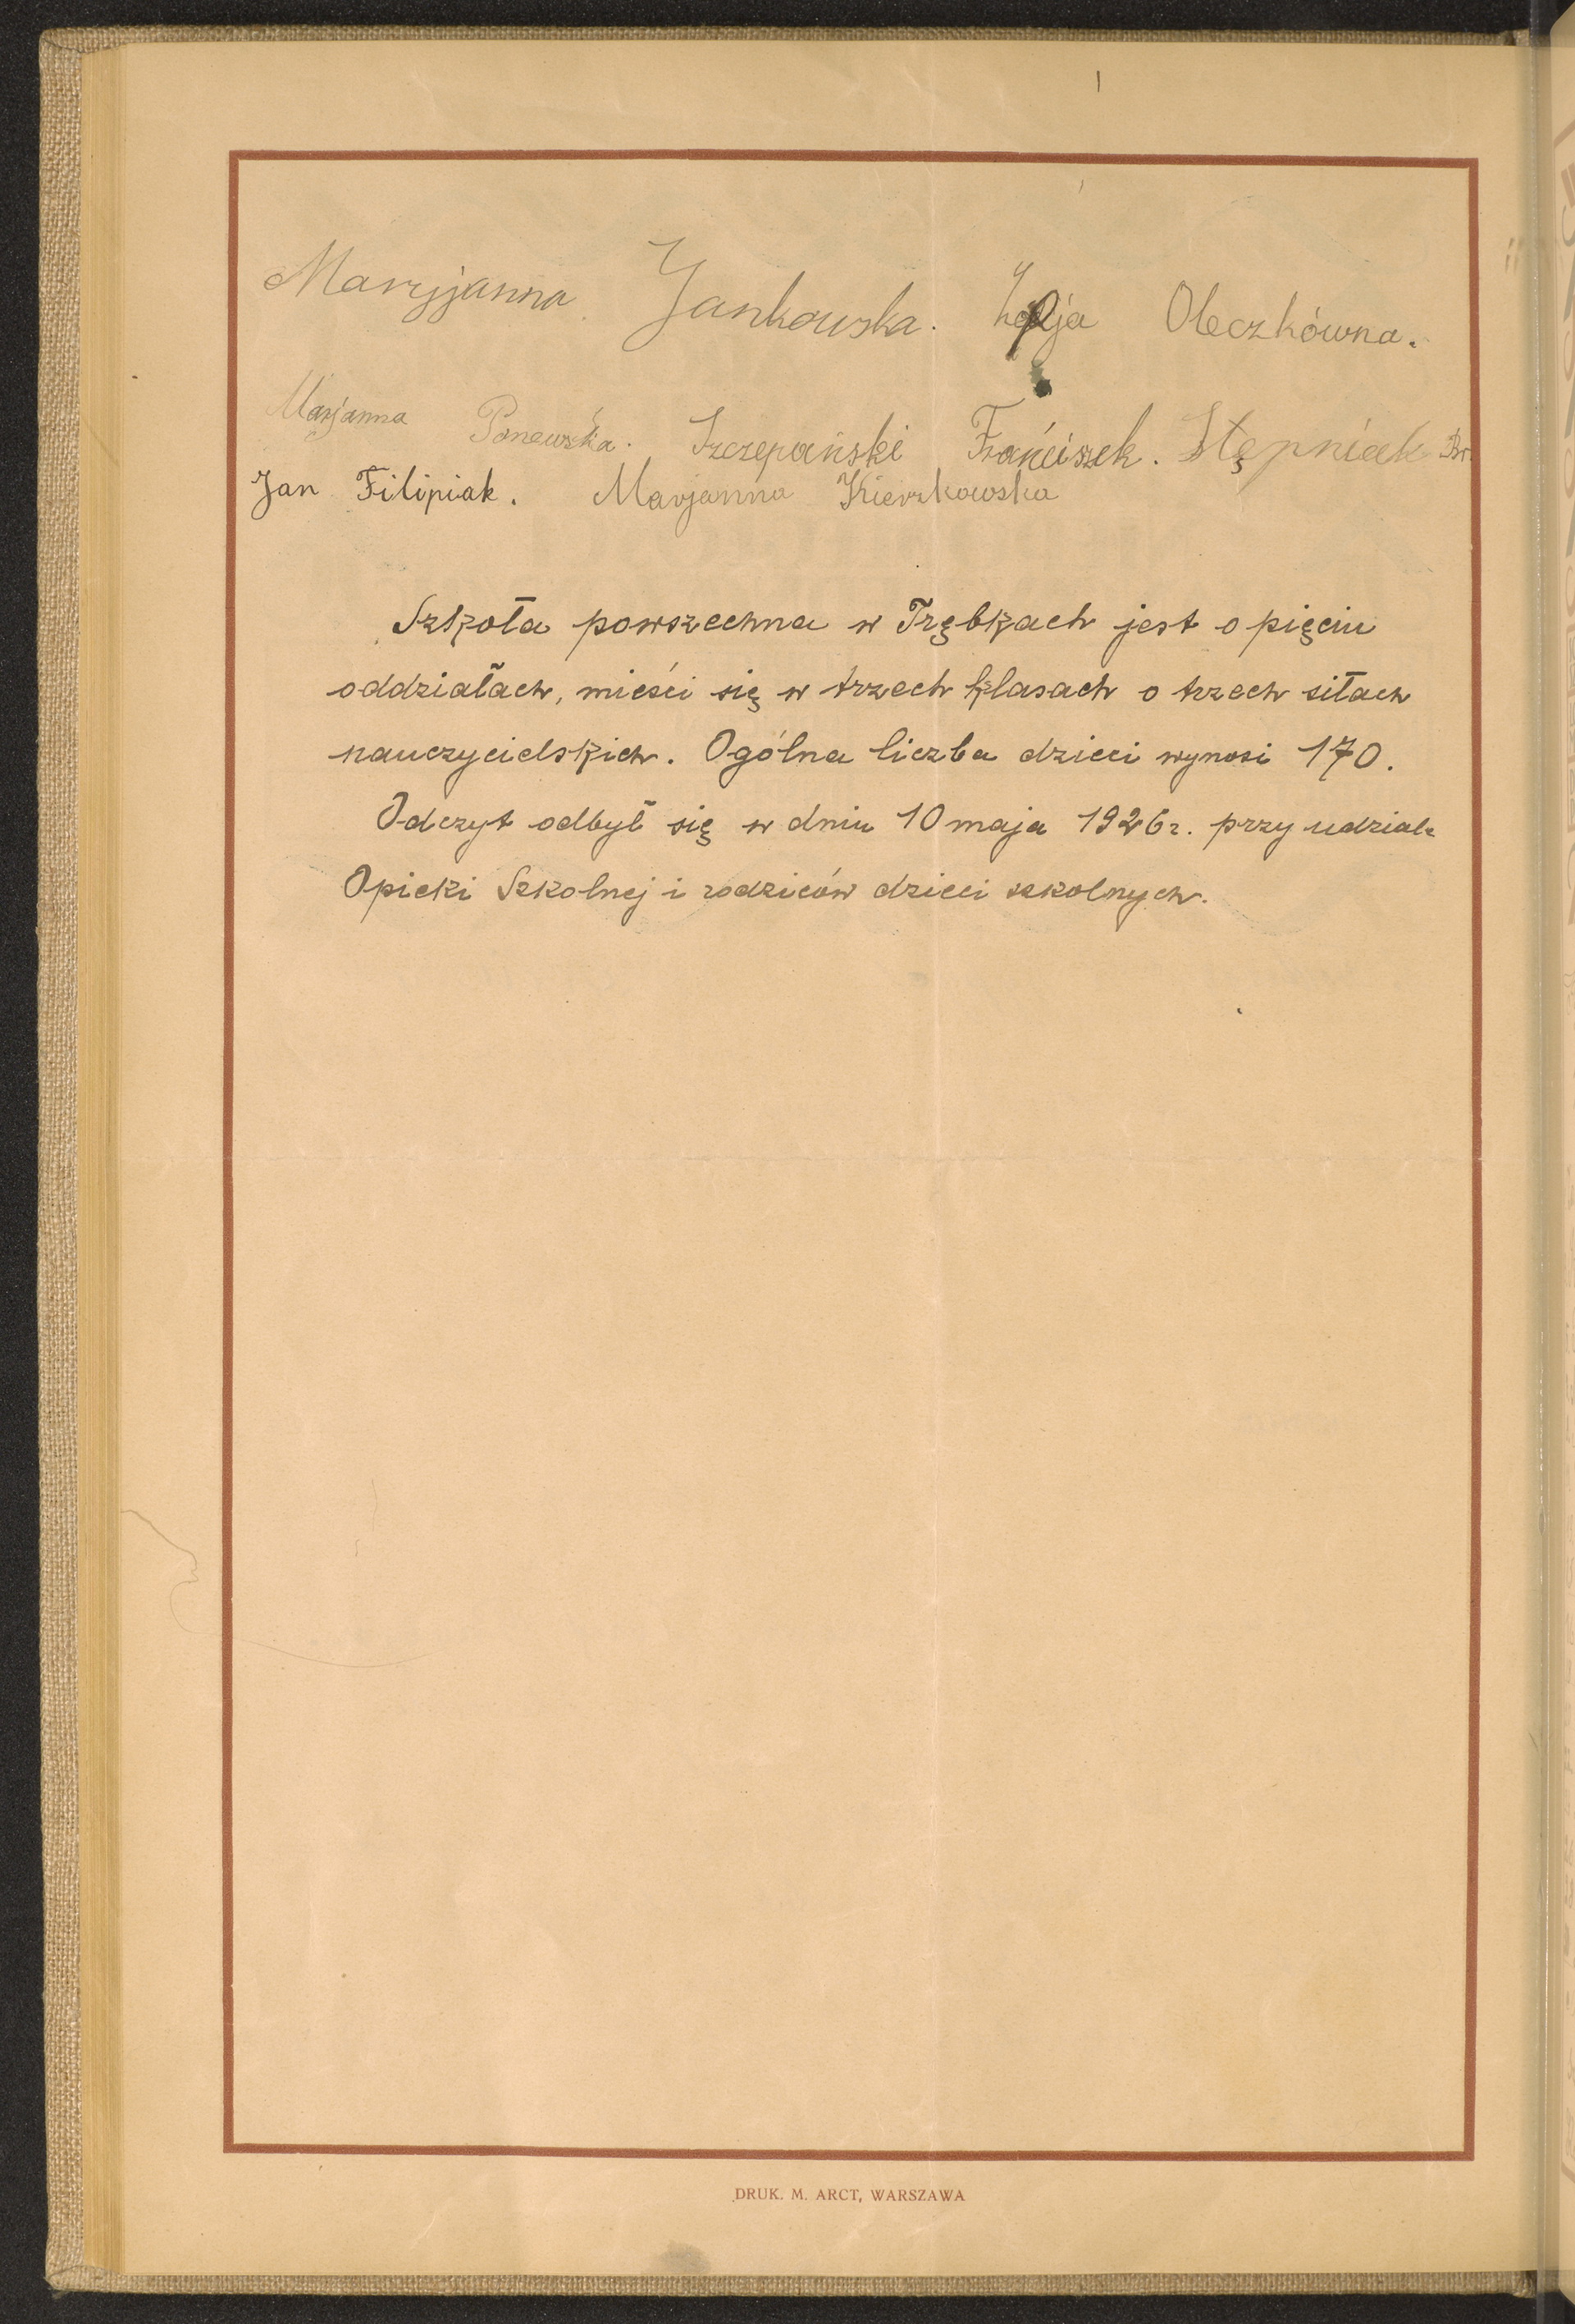 Maryjanna Jankowska. Zofja Oleczkówna.
Marjanna Panewska. Szczepański Franciszek. Stępniak Br.
Jan Filipiak. Marjanna Kierzkowska
Szkoła powszechna w Trębkach jest o pięciu
oddziałach, mieści się w trzech klasach o trzech siłach
nauczycielskich. Ogólna liczba dzieci wynosi 170.
Odczyt odbył się w dniu 10 maja 1926 r. przy udziale
Opieki Szkolnej i rodziców dzieci szkolnych.
DRUK. M. ARCT, WARSZAWA